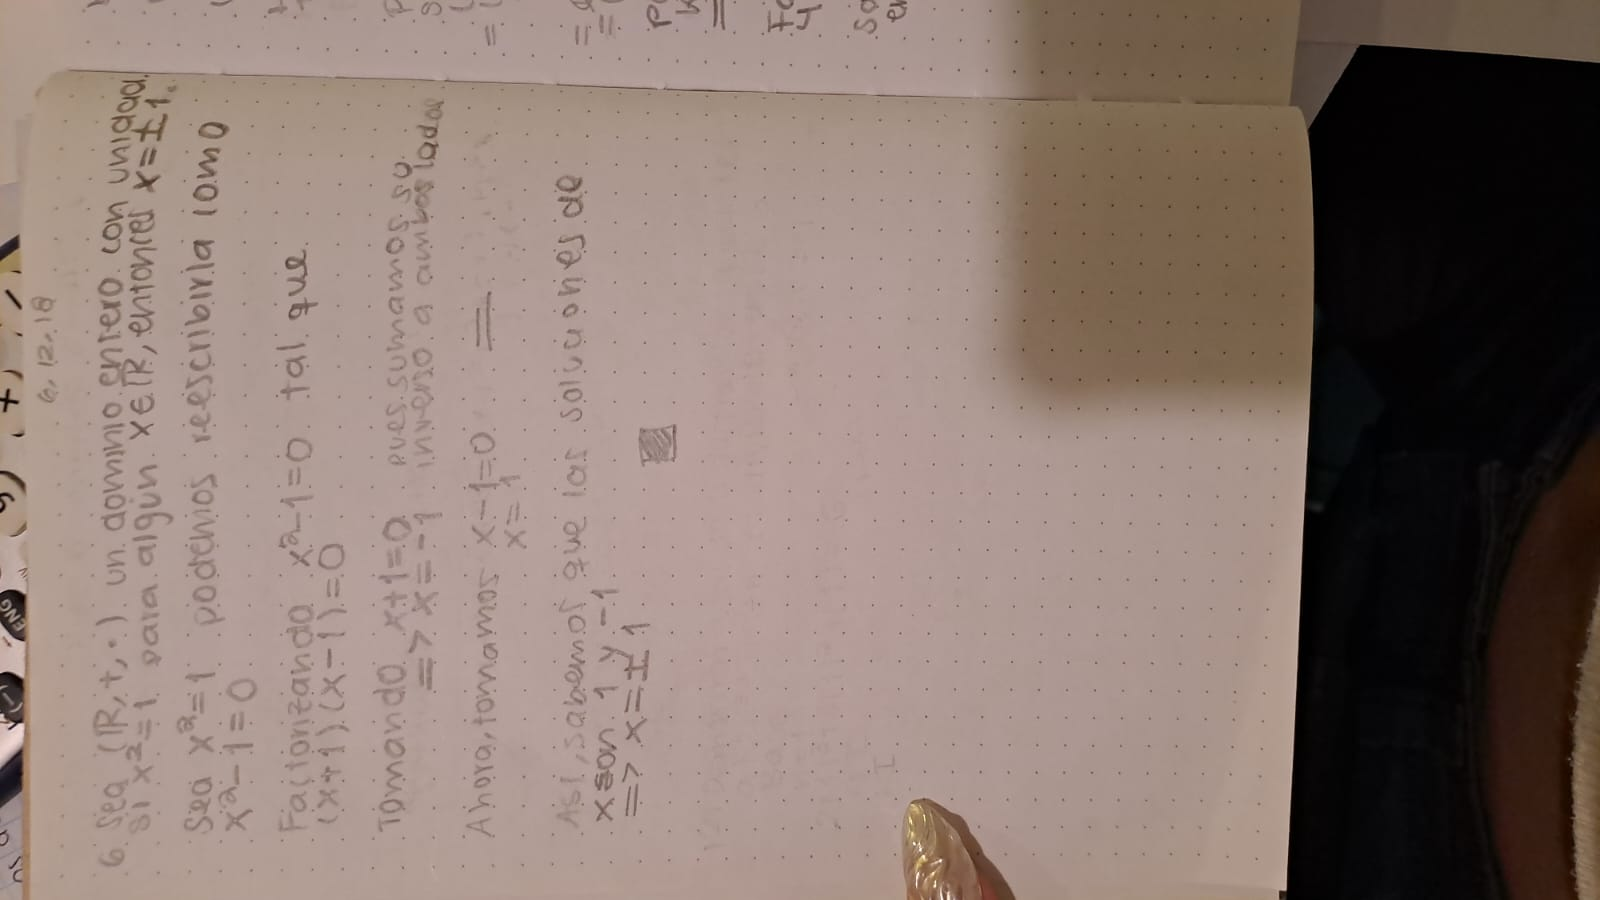 6.12.18
6. Sea (R,+,·) un dominio entero con unidad.
Si x²=1 para algún x∈R, entonces x=±1.
Sea x²=1 podemos reescribirla como
x²-1=0
Factorizando x²-1=0 tal que
(x+1)(x-1)=0
Tomando x+1=0 pues sumamos su
=> x=-1 inverso a ambos lados
Ahora, tomamos x-1=0
x=1
Así, sabemos que las soluciones de
x son 1 y -1
=> x=±1
ENG
(-)
+